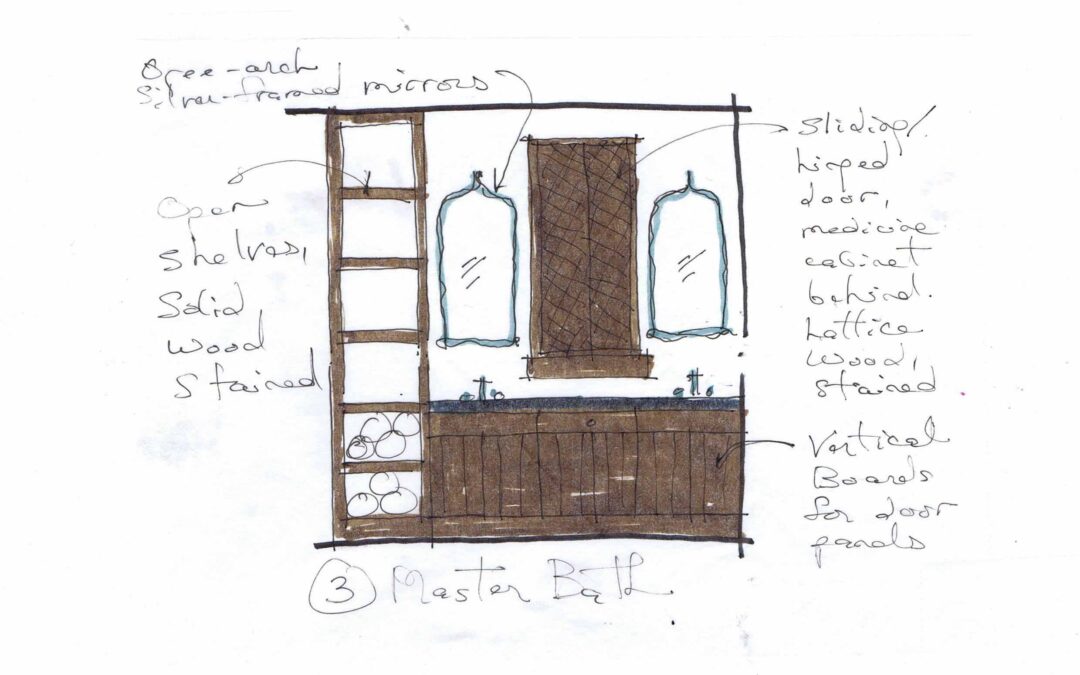 Ogee-arch
Silver-framed mirrors
Open
shelves,
Solid
wood
stained
Sliding/
hinged
door,
medicine
cabinet
behind.
Lattice
wood,
stained
Vertical
Boards
for door
panels
3 Master Bath